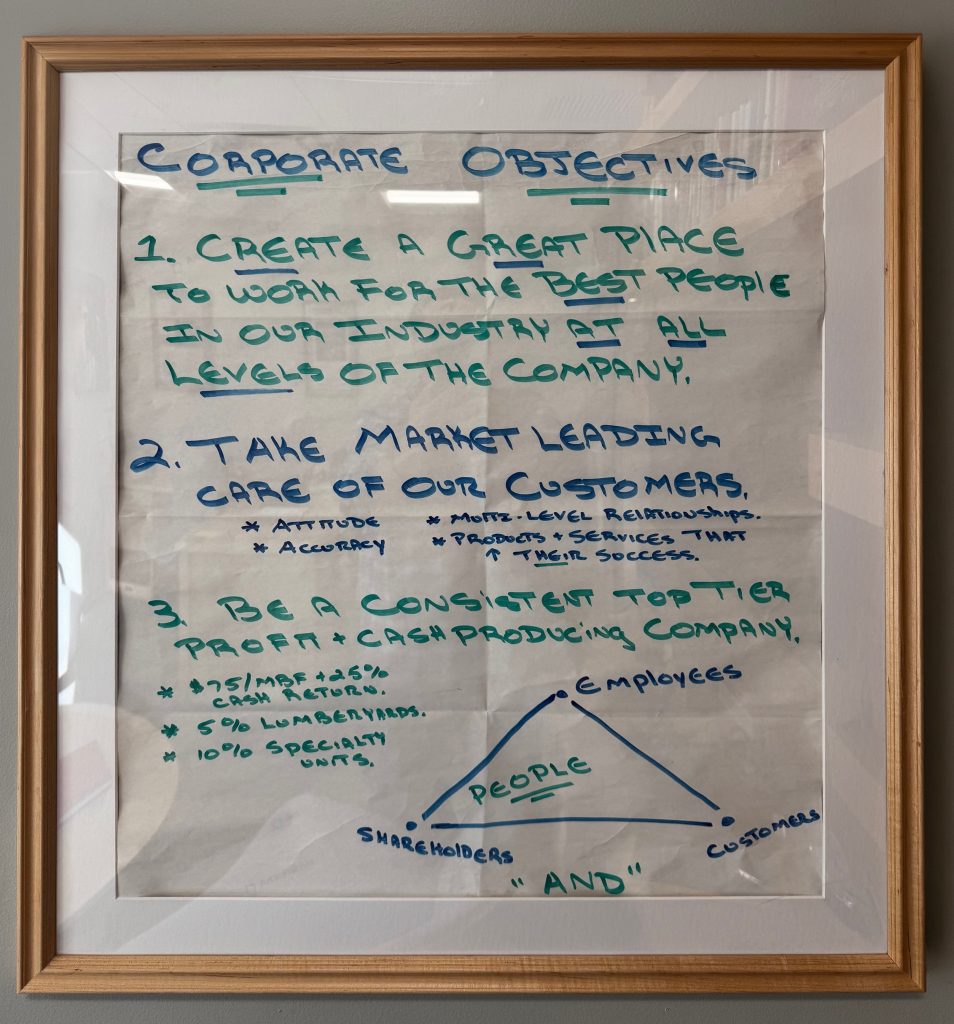 CORPORATE OBJECTIVES
1. CREATE A GREAT PLACE
TO WORK FOR THE BEST PEOPLE
IN OUR INDUSTRY AT ALL
LEVELS OF THE COMPANY.
2. TAKE MARKET LEADING
CARE OF OUR CUSTOMERS.
* ATTITUDE
* ACCURACY
* MULTI-LEVEL RELATIONSHIPS.
* PRODUCTS + SERVICES THAT
↑ THEIR SUCCESS.
3. BE A CONSISTENT TOP TIER
PROFIT + CASH PRODUCING COMPANY.
* $75/MBF + 25%
CASH RETURN.
* 5% LUMBERYARDS.
* 10% SPECIALTY
UNITS.
EMPLOYEES
PEOPLE
SHAREHOLDERS
CUSTOMERS
"AND"